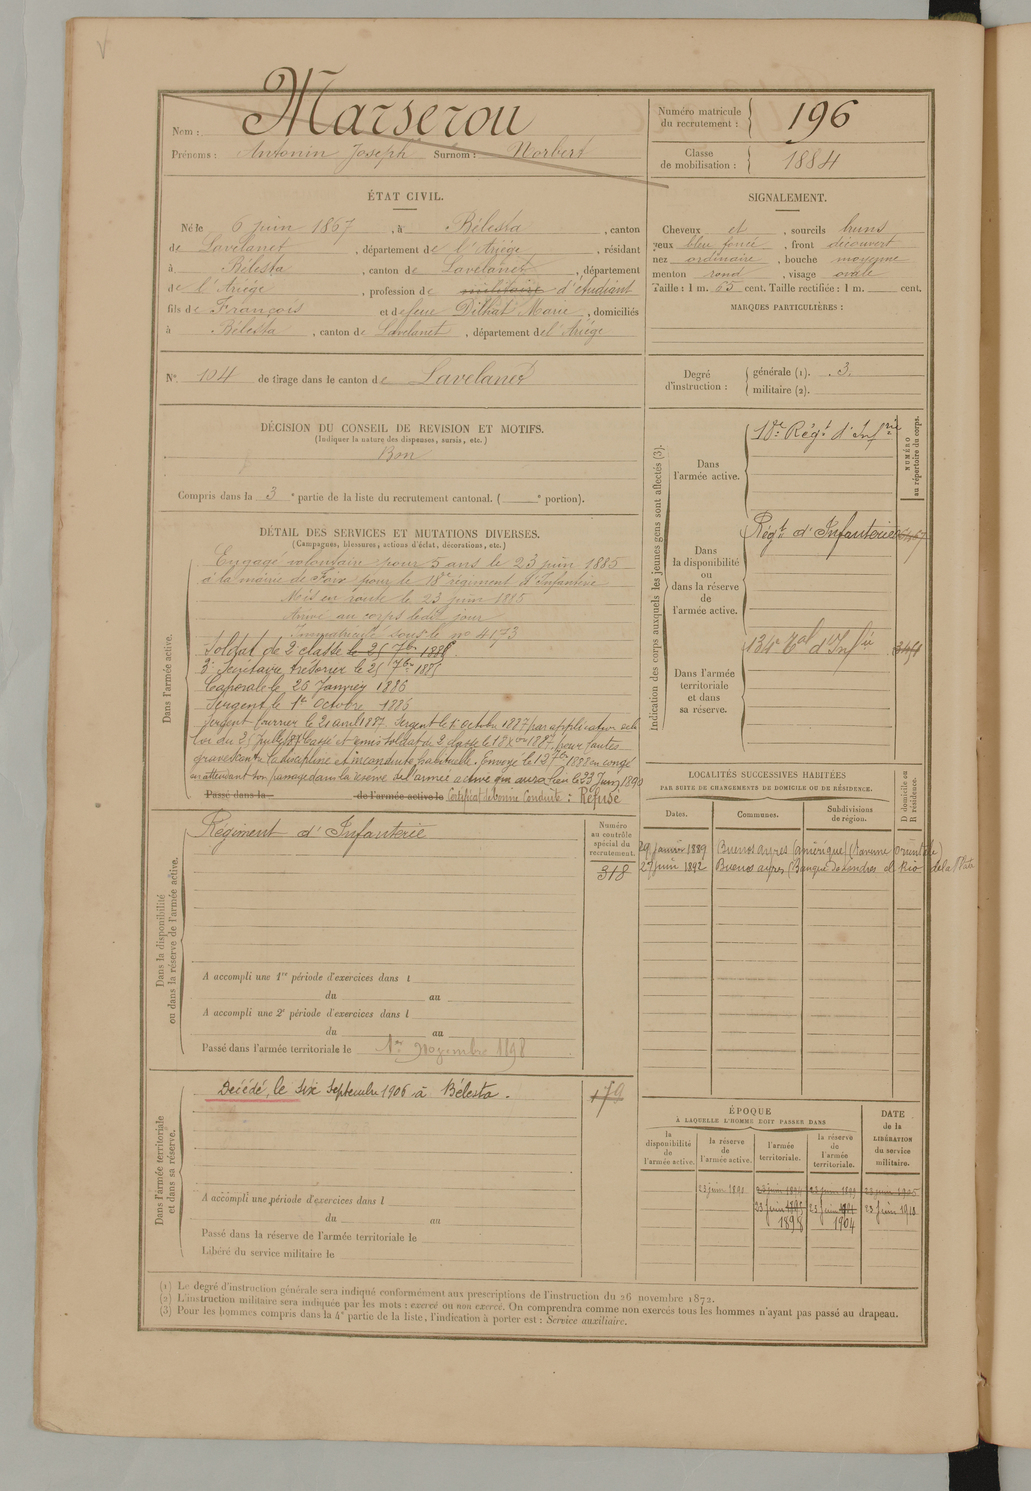 Nom : Marserou
Prénoms : Antonin Joseph Surnom : Norbert
Numéro matricule du recrutement : 196
Classe de mobilisation : 1884
ÉTAT CIVIL.
Né le 6 juin 1867, à Bélesta, canton
de Lavelanet, département de l'Ariége, résidant
à Bélesta, canton de Lavelanet, département
de l'Ariége, profession de militaire d'étudiant
fils de François et de feue Dilhat Marie, domiciliés
à Bélesta, canton de Lavelanet, département de l'Ariége
SIGNALEMENT.
Cheveux et, sourcils bruns
yeux bleu foncé, front découvert
nez ordinaire, bouche moyenne
menton rond, visage ovale
Taille : 1 m. 65 cent. Taille rectifiée : 1 m. cent.
MARQUES PARTICULIÈRES :
N° 104 de tirage dans le canton de Lavelanet
Degré d'instruction :
générale (1). 3.
militaire (2).
DÉCISION DU CONSEIL DE REVISION ET MOTIFS.
(Indiquer la nature des dispenses, sursis, etc.)
Bon
Compris dans la 3e partie de la liste du recrutement cantonal. ( e portion).
DÉTAIL DES SERVICES ET MUTATIONS DIVERSES.
(Campagnes, blessures, actions d'éclat, décorations, etc.)
Dans l'armée active.
Engagé volontaire pour 5 ans le 23 juin 1885
à la mairie de Foix pour le 18e régiment d'Infanterie
Mis en route le 23 juin 1885
Arrivé au corps ledit jour
Immatriculé sous le no 4173
Soldat de 2 classe le 25 7bre 1885.
3e Secrétaire trésorier le 25 7bre 1885
Caporal le 26 Janvier 1886
Sergent le 1er Octobre 1886
Sergent fourrier le 21 avril 1887. Sergent le 1 octobre 1887 par application de la
loi du 25 Juillet 1887 Cassé et remis soldat de 2 classe le 18 Xbre 1887 pour fautes
graves contre la discipline et inconduite habituelle. Envoyé le 12 7bre 1888 en congé
en attendant son passage dans la réserve de l'armée active qui aura lieu le 23 Juin 1890
Passé dans la de l'armée active le Certificat de Bonne Conduite : Refusé
Indication des corps auxquels les jeunes gens sont affectés (3).
NUMÉRO au répertoire du corps.
Dans l'armée active.
18e Régt d'Infrie
Dans la disponibilité ou dans la réserve de l'armée active.
Régt d'Infanterie
Dans l'armée territoriale et dans sa réserve.
134e Eal d'Infie
LOCALITÉS SUCCESSIVES HABITÉES
PAR SUITE DE CHANGEMENTS DE DOMICILE OU DE RÉSIDENCE.
Dates. Communes. Subdivisions de région. D domicile ou R résidence.
29 janvier 1889 Buenos ayres (amérique) (Taverne orientale)
27 juin 1892 Buenos ayres (Banque de Londres et Rio de la Plata
Dans la disponibilité ou dans la réserve de l'armée active.
Régiment d'Infanterie
Numéro au contrôle spécial du recrutement.
318
A accompli une 1re période d'exercices dans l
du au
A accompli une 2e période d'exercices dans l
du au
Passé dans l'armée territoriale le 1er Novembre 1898
Dans l'armée territoriale et dans sa réserve.
Décédé, le six Septembre 1906 à Bélesta.
179
A accompli une période d'exercices dans l
du au
Passé dans la réserve de l'armée territoriale le
Libéré du service militaire le
ÉPOQUE
À LAQUELLE L'HOMME DOIT PASSER DANS
la disponibilité de l'armée active.
la réserve de l'armée active.
l'armée territoriale.
la réserve de l'armée territoriale.
DATE de la LIBÉRATION du service militaire.
23 juin 1890 23 juin 1894 23 juin 1899 23 juin 1905
23 juin 1895 23 juin 1901 23 juin 1910
1898 1904
(1) Le degré d'instruction générale sera indiqué conformément aux prescriptions de l'instruction du 26 novembre 1872.
(2) L'instruction militaire sera indiquée par les mots : exercé ou non exercé. On comprendra comme non exercés tous les hommes n'ayant pas passé au drapeau.
(3) Pour les hommes compris dans la 4e partie de la liste, l'indication à porter est : Service auxiliaire.